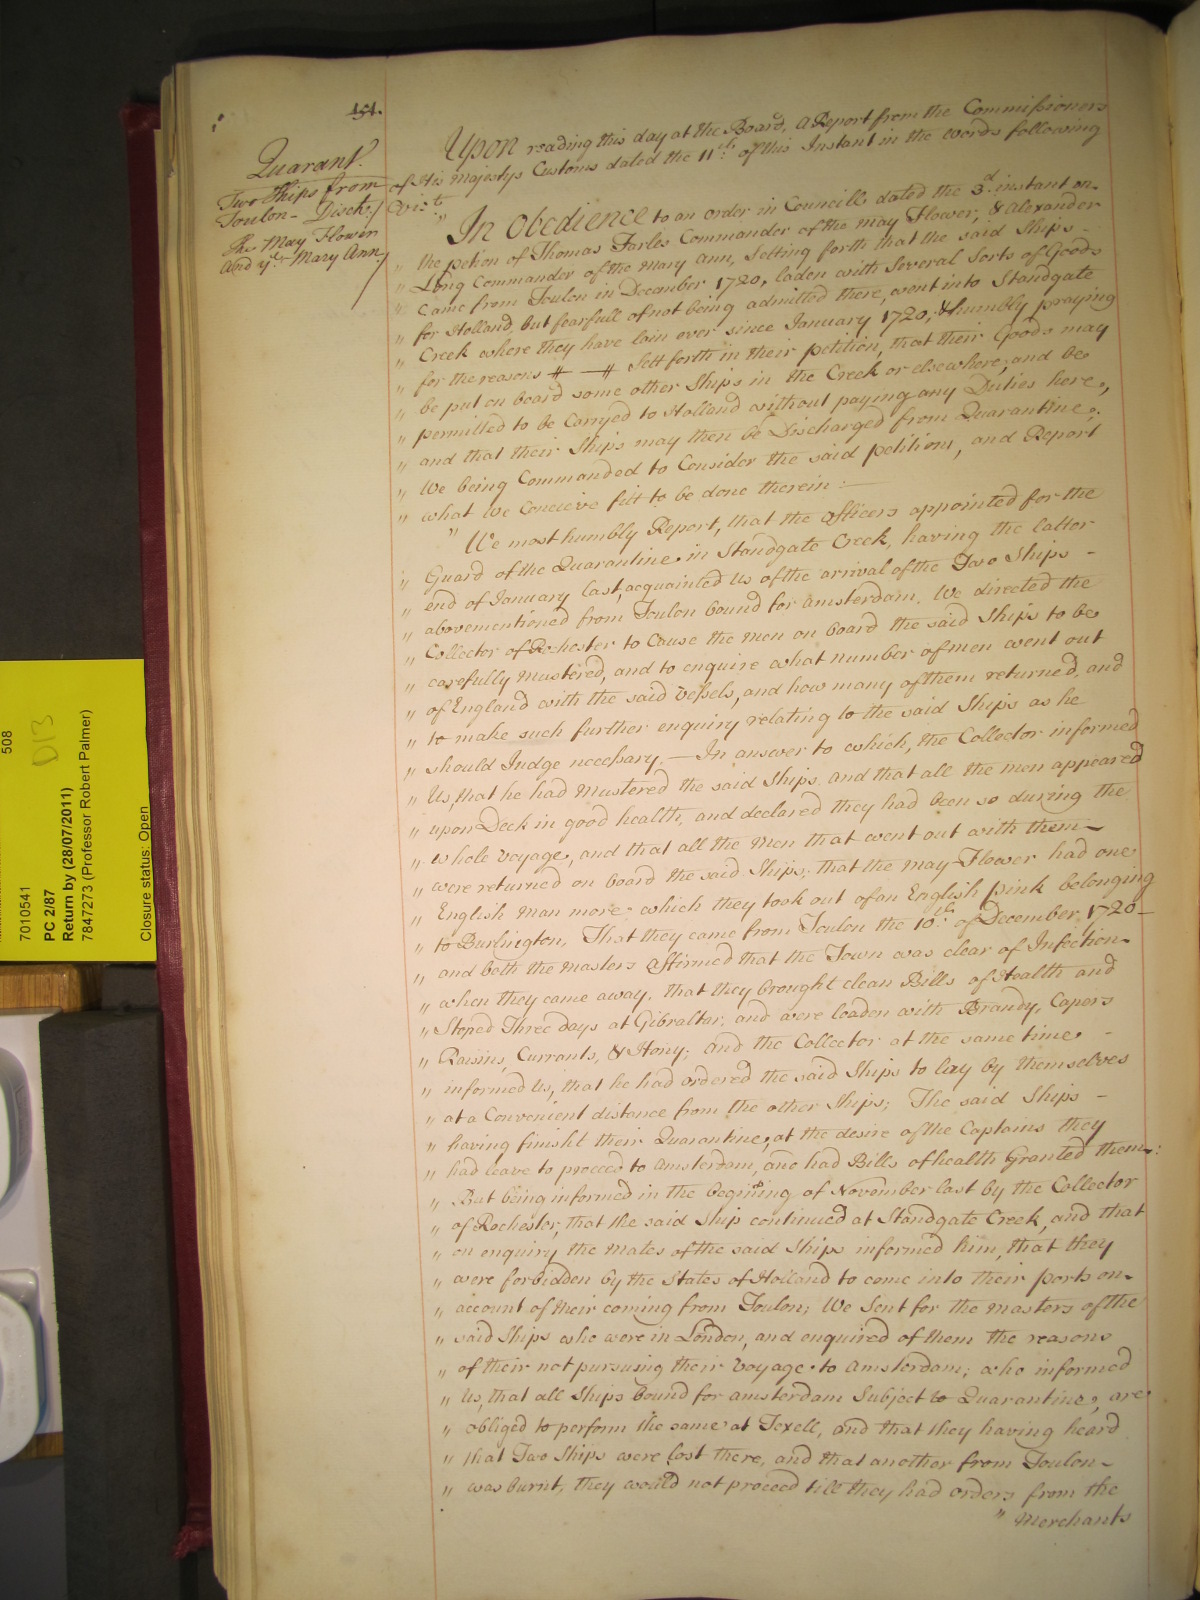 151.
Quarant.
Two Ships from
Toulon – Disch:/
The May Flower
And ye. Mary Ann/
Upon reading this day at the Board, a Report from the Commissioners
of His Majestys Customs dated the 11th. of this Instant in the words following
Vizt.
" In Obedience to an order in Councill dated the 3d. instant on
" the petion of Thomas Farles Commander of the May Flower, & Alexander
" Long Commander of the Mary Ann, Setting forth that the said Ships –
" Came from Toulon in December 1720, laden with Several Sorts of Goods
" for Holland, but fearfull of not being admitted there, went into Standgate
" Creek where they have lain ever since January 1720, & humbly praying
" for the reasons # — # Sett forth in their petition, that their Goods may
" be put on board some other Ships in the Creek or elsewhere, and be
" permitted to be Carryed to Holland without paying any Duties here,
" and that their Ships may then be Discharged from Quarantine;
" We being Commanded to Consider the said petitions, and Report
" what We Concieve fitt to be done therein: —
" We most humbly Report, that the Officers appointed for the
" Guard of the Quarantine in Standgate Creek, having the latter
" end of January last, acquainted Us of the arrival of the Two Ships –
" abovementioned from Toulon bound for Amsterdam, We directed the
" Collector of Rochester to Cause the men on board the said Ships to be
" carefully mustered, and to enquire what number of men went out
" of England with the said Vessels, and how many of them returned, and
" to make such further enquiry relating to the said Ships as he
" should Judge necessary. — In answer to which, the Collector informed
" Us, that he had Mustered the said Ships, and that all the men appeared
" upon Deck in good health, and declared they had been so during the
" whole Voyage, and that all the Men that went out with them –
" were returned on board the said Ships; that the May-Flower had one
" English man more which they took out of an English pink belonging
" to Burlington, That they came from Toulon the 10th. of December 1720 –
" and both the Masters Affirmed that the Town was clear of Infection
" when they came away, that they brought clean Bills of Health and
" Stoped Three days at Gibraltar, and were loaden with Brandy, Capers
" Raisins, Currants, & Hony; and the Collector at the same time –
" informed Us, that he had ordered the said Ships to lay by themselves
" at a Convenient distance from the other Ships; The said Ships –
" having finisht their Quarantine, at the desire of the Captains they
" had leave to proceed to Amsterdam, and had Bills of health Granted them:
" But being informed in the begining of November last by the Collector
" of Rochester, that the said Ship continued at Standgate Creek, and that
" on enquiry the Mates of the said Ships informed him, that they
" were forbidden by the States of Holland to come into their ports on
" account of their coming from Toulon; We Sent for the Masters of the
" said Ships who were in London, and enquired of them the reasons
" of their not pursuing their Voyage to Amsterdam; who informed
" Us, that all Ships bound for Amsterdam Subject to Quarantine, are
" obliged to perform the same at Texell, and that they having heard
" that Two Ships were lost there, and that another from Toulon –
" was burnt, they would not proceed till they had orders from the
" Merchants
508
D13
7010541
PC 2/87
Return by (28/07/2011)
7847273 (Professor Robert Palmer)
Closure status: Open